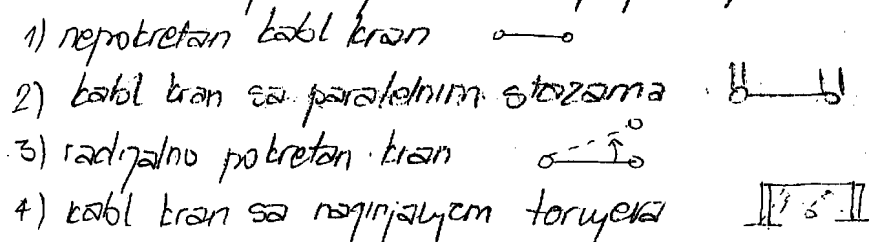 1) nepokretan kabl kran
2) kabl kran sa paralelnim stazama
3) radijalno pokretan kran
4) kabl kran sa naginjanjem tornjeva